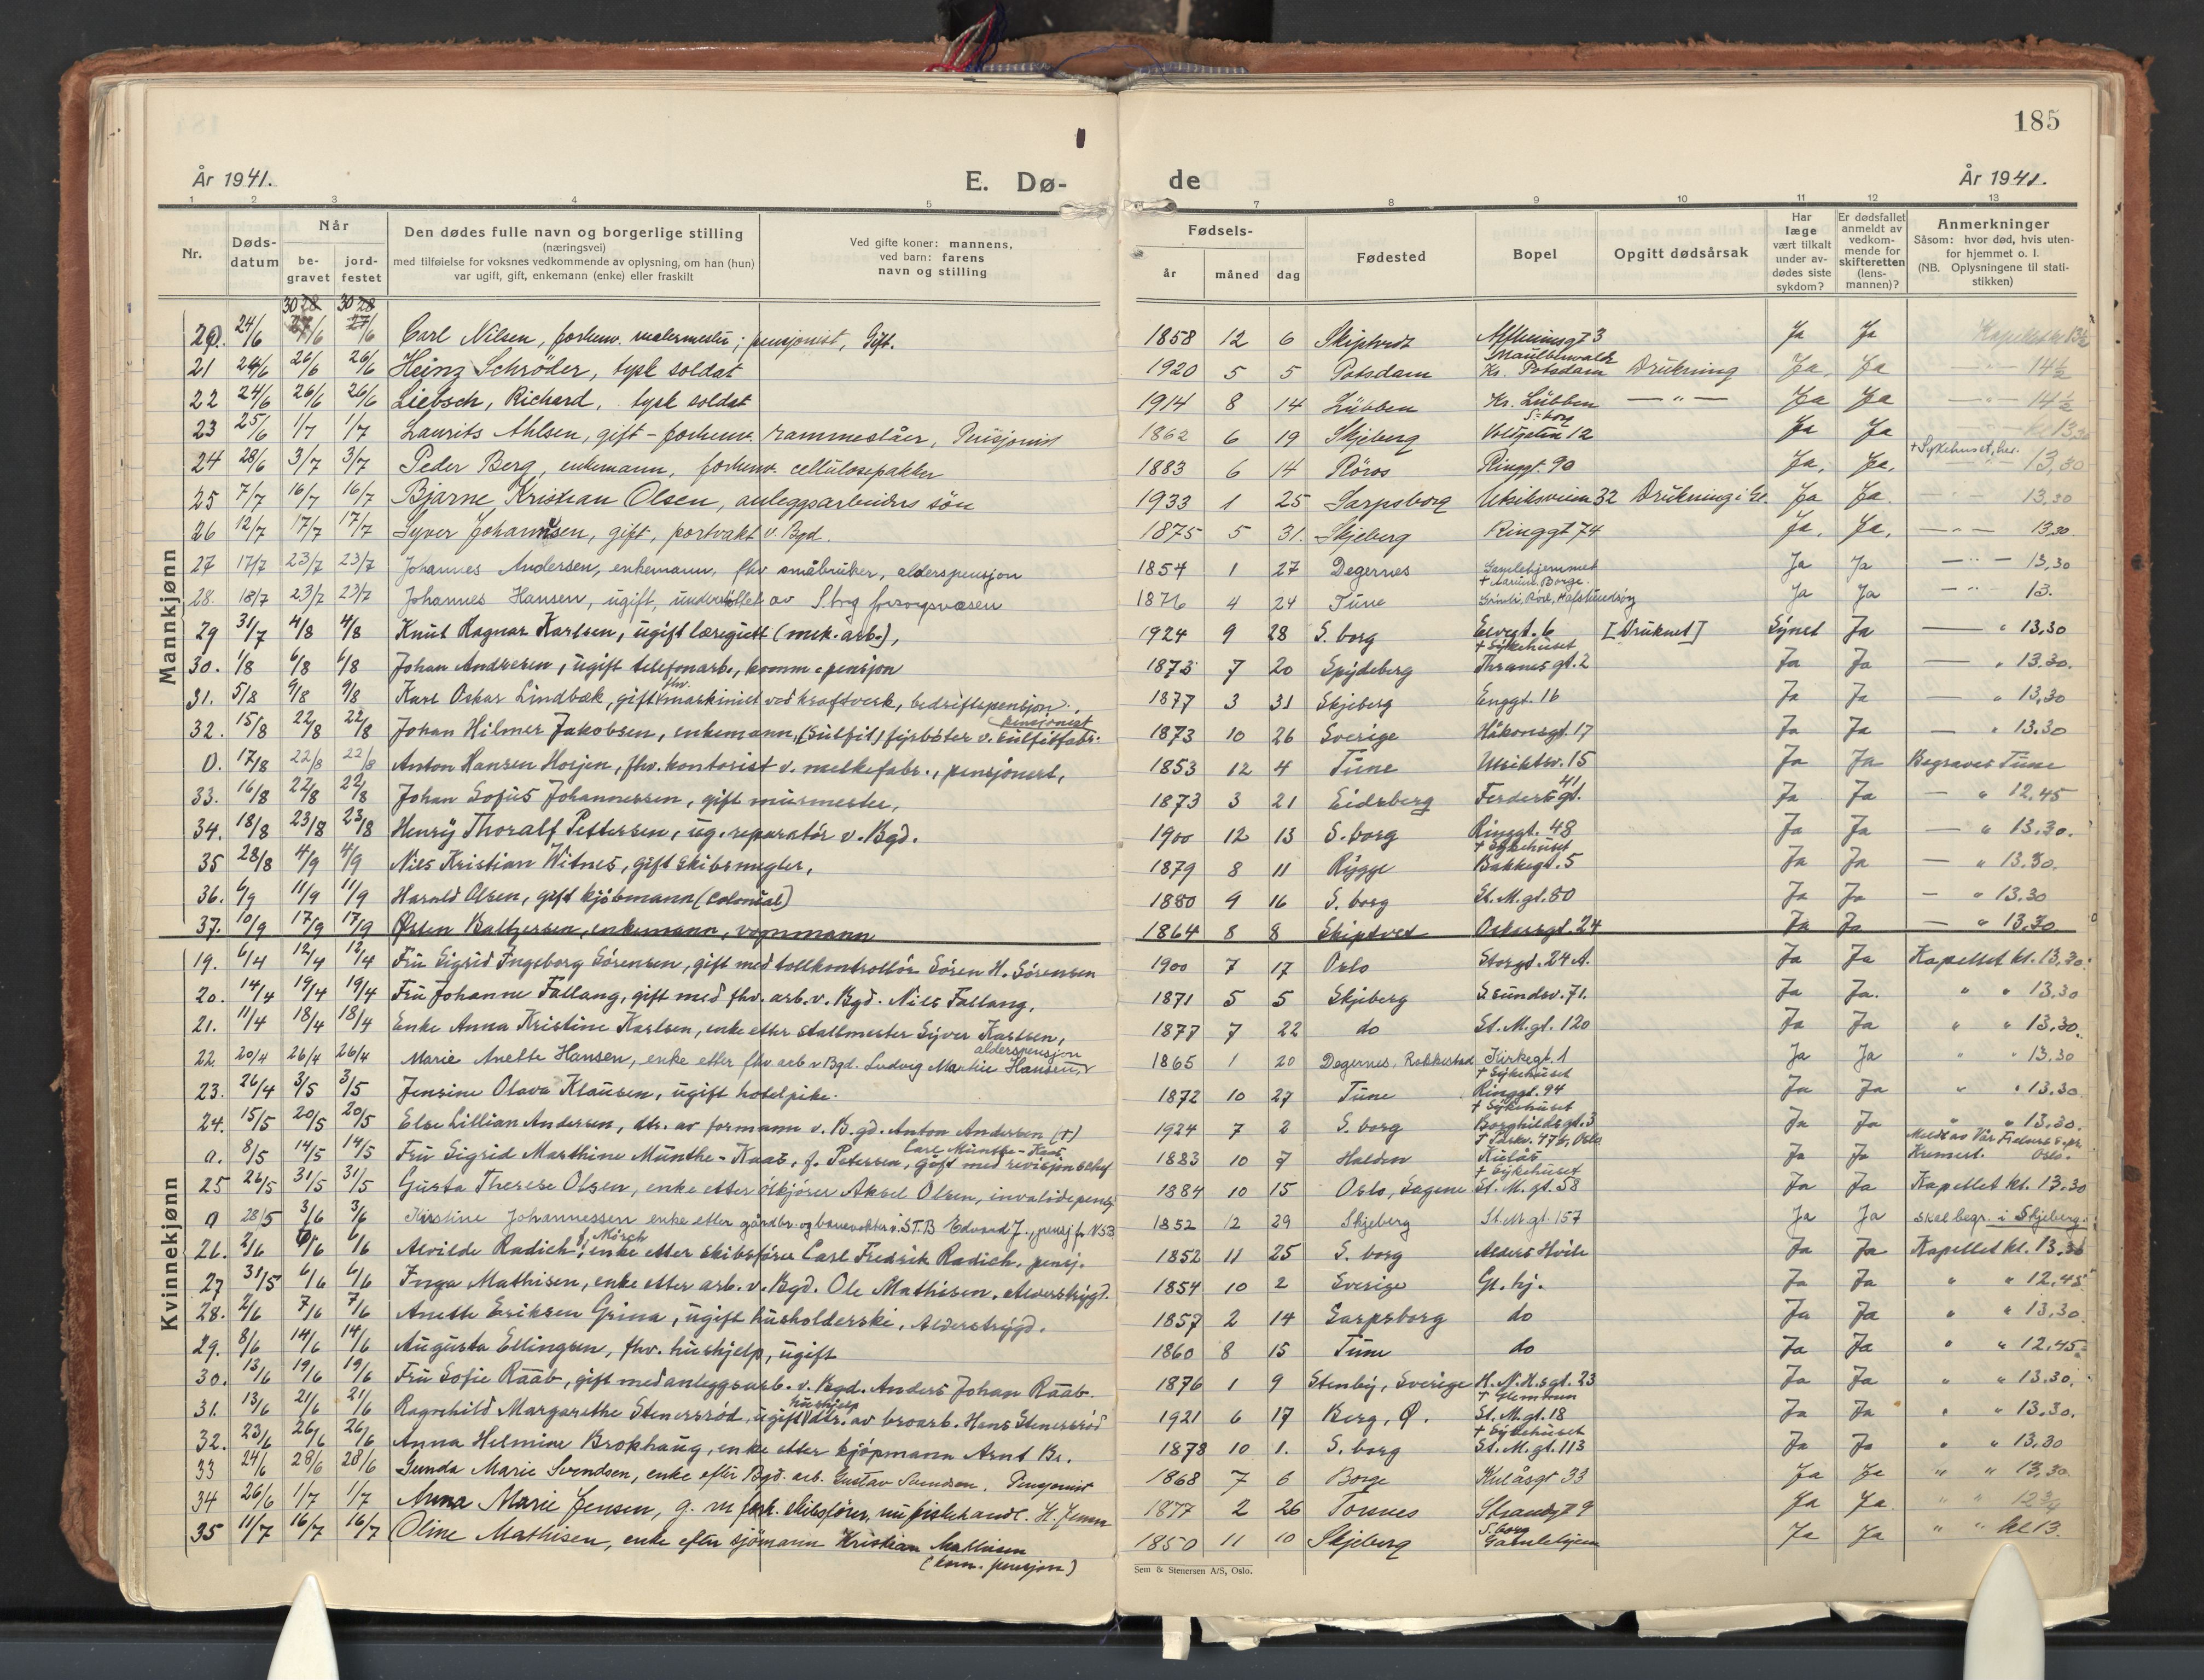 185
År 1941.
E. Dø-
de
År 1941.
1 2 3 4 5 7 8 9 10 11 12 13
Nr.
Døds-
datum
Når
be-
gravet
jord-
festet
Den dødes fulle navn og borgerlige stilling
(næringsvei)
med tilføielse for voksnes vedkommende av oplysning, om han (hun)
var ugift, gift, enkemann (enke) eller fraskilt
Ved gifte koner: mannens,
ved barn: farens
navn og stilling
Fødsels-
år måned dag
Fødested
Bopel
Opgitt dødsårsak
Har
læge
vært tilkalt
under av-
dødes siste
sykdom?
Er dødsfallet
anmeldt av
vedkom-
mende for
skifteretten
(lens-
mannen)?
Anmerkninger
Såsom: hvor død, hvis uten-
for hjemmet o. l.
(NB. Oplysningene til stati-
stikken)
Mannkjønn
20. 24/6 30/6 30/6 Carl Nilsen, forhenv. malermester; pensjonist, Gift. 1858 12 6 Skiptvedt Ja Ja
21 24/6 26/6 26/6 Heinz Schrøder, tysk soldat 1920 5 5 Potsdam Kr. Potsdam Drukning Ja, Ja — " — 14½
22 24/6 26/6 26/6 Liebsch, Richard, tysk soldat 1914 8 14 Lübben Kr. Lübben — " — Ja Ja — " — 14½
23 25/6 1/7 1/7 Laurits Ahlsen, gift - forhenv. rammeslåer, Pensjonist 1862 6 19 Skjeberg S-borg Voldgaten 12 Ja Ja
24 28/6 3/7 3/7 Peder Berg, enkemann, forhenv. cellulosepakker 1883 6 14 Røros Ringgt. 90 Ja, Ja, + Sykehuset, her. 13,30
25 7/7 16/7 16/7 Bjarne Kristian Olsen, anleggsarbeiders søn 1933 1 25 Sarpsborg Utsiktsveien 32 Drukning i Gl. Ja Ja. 13,30
26 12/7 17/7 17/7 Syver Johannsen, gift, portvakt v. Bgd. 1875 5 31. Skjeberg Ringgt 74 Ja, Ja, — " — 13.30.
27 17/7 23/7 23/7 Johannes Andersen, enkemann, fhv småbruker, alderspensjon 1854 1 27 Degernes Gamlehjemmet Ja Ja — " — 13,30
28. 18/7 23/7 23/7 Johannes Hansen, ugift, understøttet av S.borg forsorgsvæsen 1876 4 24 Tune Ja Ja — " — 13.
29 31/7 4/8 4/8 Knut Ragnar Karlsen, ugift læregutt (mek. arb.), 1924 9 28 S. borg Elvegt. 6 [Druknet] Synet Ja — " 13,30
30. 1/8 6/8 6/8 Johan Andresen, ugift telefonarb., komm. pensjon 1873 7 20 Spydeberg + Sykehuset Thranesgt. 2 Ja Ja — " 13.30.
31. 5/8 9/8 9/8 Karl Oskar Lindbæk, gift fhv. maskinist ved kraftverk, bedriftspensjon. 1877 3 31 Skjeberg Enggt. 16 Ja Ja — " 13,30
32. 15/8 22/8 22/8 Johan Hilmer Jakobsen, enkemann, (Sulfit) fyrbøter v. sulfitfabr. pensjonist 1873 10 26 Sverige Håkonsgt. 17 Ja Ja — " 13.30
0. 17/8 22/8 22/8 Anton Hansen Horjen, fhv. kontorist v. melkefabr., pensjonert, 1853 12 4 Tune Utsiktsv. 15 Ja Ja Begraves Tune
33. 16/8 22/8 22/8 Johan Sofus Johannessen, gift murmester, 1873 3 21 Eidsberg Ferdersgt. 41 Ja Ja — " 12.45
34. 18/8 23/8 23/8 Henry Thoralf Pettersen, ug. reparatør v. Bgd. 1900 12 13 S. borg Ringgt. 48 Ja Ja — " 13.30.
35 28/8 4/9 4/9 Nils Kristian Witnes, gift skibsmegler, 1879 8 11 Rygge + Sykehuset Bakkegt. 5 Ja Ja — " 13.30.
36. 6/9 11/9 11/9 Harald Olsen, gift kjøbmann (Colonial) 1880 9 16 S. borg St. M. gt. 80 Ja Ja — " 13.30
37. 10/9 17/9 17/9 Østen Baltzersen, enkemann, vognmann 1864 8 8 Skiptvet Oskarsgt. 24 Ja Ja — " 13.30
Kvinnekjønn
19. 6/4 12/4 12/4 Fru Sigrid Ingeborg Sørensen, gift med tollkontrollør Søren H. Sørensen 1900 7 17 Oslo Storgt. 24 A. Ja Ja Kapellet kl. 13,30.
20. 14/4 19/4 19/4 Fru Johanne Fallang, gift med fhv. arb. v. Bgd. Nils Fallang, 1871 5 5 Skjeberg S.sundsv. 71. Ja Ja. " " 13.30
21. 11/4 18/4 18/4 Enke Anna Kristine Karlsen, enke etter stallmester Syver Karlsen, 1877 7 22 do St. M. gt. 120 Ja Ja " " 13,30.
22. 20/4 26/4 26/4 Marie Anette Hansen, enke etter fhv arb v Bgd. Ludvig Martin Hansen, alderspensjon 1865 1 20 Degernes, Rakkestad Kirkegt. 1 Ja Ja " " 13.30
23. 26/4 3/5 3/5 Jensine Olava Klausen, ugift hotelpike. 1872 10 27 Tune + Sykehuset Ringgt. 94 Ja Ja " " 13.30.
24. 15/5 20/5 20/5 Else Lillian Andersen, dtr. av formann v. B.gd. Anton Andersen (+) 1924 7 2 S. borg + Sykehuset Borghildsgt. 3 Ja Ja " " 13.30.
a. 8/5 14/5 14/5 Fru Sigrid Marthine Munthe-Kaas, f. Petersen, gift med revisjonschef Carl Munthe-Kaas 1883 10 7 Halden Kulås Ja Ja Kremert. Oslo.
25 26/5 31/5 31/5 Gusta Therese Olsen, enke etter ølkjører Aksel Olsen, invalidepensj. 1884 10 15 Oslo, Sagene + Sykehuset St. M. gt. 58 Ja Ja Kapellet kl. 13.30
0 28/5 3/6 3/6 Kirstine Johannessen enke etter gårdbr. og banevokter v. ST.B Edvard J., pensj fr NSB 1852 12 29 Skjeberg St. M. gt. 157 Ja Ja skal begr. i Skjeberg.
26. 2/6 6/6 6/6 Alvilde Radich, f. Mørch enke etter skibsfører Carl Fredrik Radich. pensj. 1852 11 25 S. borg Alders Hvile Ja Ja Kapellet kl. 13.30
27 31/5 6/6 6/6 Inga Mathisen, enke etter arb. v. Bgd. Ole Mathisen. Alderstrygd. 1854 10 2 Sverige Gl. hj. Ja Ja " " 12,45
28. 2/6 7/6 7/6 Anette Eriksen Grina, ugift husholderske. Alderstrygd. 1857 2 14 Sarpsborg do Ja Ja " " 13.30
29. 8/6 14/6 14/6 Augusta Ellingsen, fhv. hushjelp, ugift 1860 8 15 Tune do Ja Ja " " 12.45
30. 13/6 19/6 19/6 Fru Sofie Rååb, gift med anleggsarb. v. Bgd. Anders Johan Rååb. 1876 1 9 Stenby, Sverige H. N. H.s gt. 23 Ja Ja " " 13.30.
31. 13/6 21/6 21/6 Ragnhild Margarethe Stenersrød, ugift hushjelp dtr. av broarb. Hans Stenersrød 1921 6 17 Berg, Ø. St. M. gt. 18 Ja Ja " " 13.30.
32. 23/6 26/6 26/6 Anna Helmine Brokhaug, enke etter kjøpmann Arnt Br. 1878 10 1. S. borg + Sykehuset St. M. gt. 113 Ja Ja " " 13.30
33 24/6 28/6 28/6 Gunda Marie Svendsen, enke efter Bgd. arb. Gustav Svendsen, Pensjonist 1868 7 6 Borge Kulåsgt 33 Ja Ja " " 13,30
34 26/6 1/7 1/7 Anna Marie Jensen, g. m forh. skibsfører, nu fiskehandl. H. Jensen 1877 2 26 Torsnes Strandgt 9 Ja Ja. " " 12¾
35 11/7 16/7 16/7 Oline Mathisen, enke efter sjømann Kristian Mathisen 1850 11 10 Skjeberg S.borg Gamlehjem Ja Ja " " kl 13.
(kom. pensjon)
Sem & Stenersen A/S, Oslo.